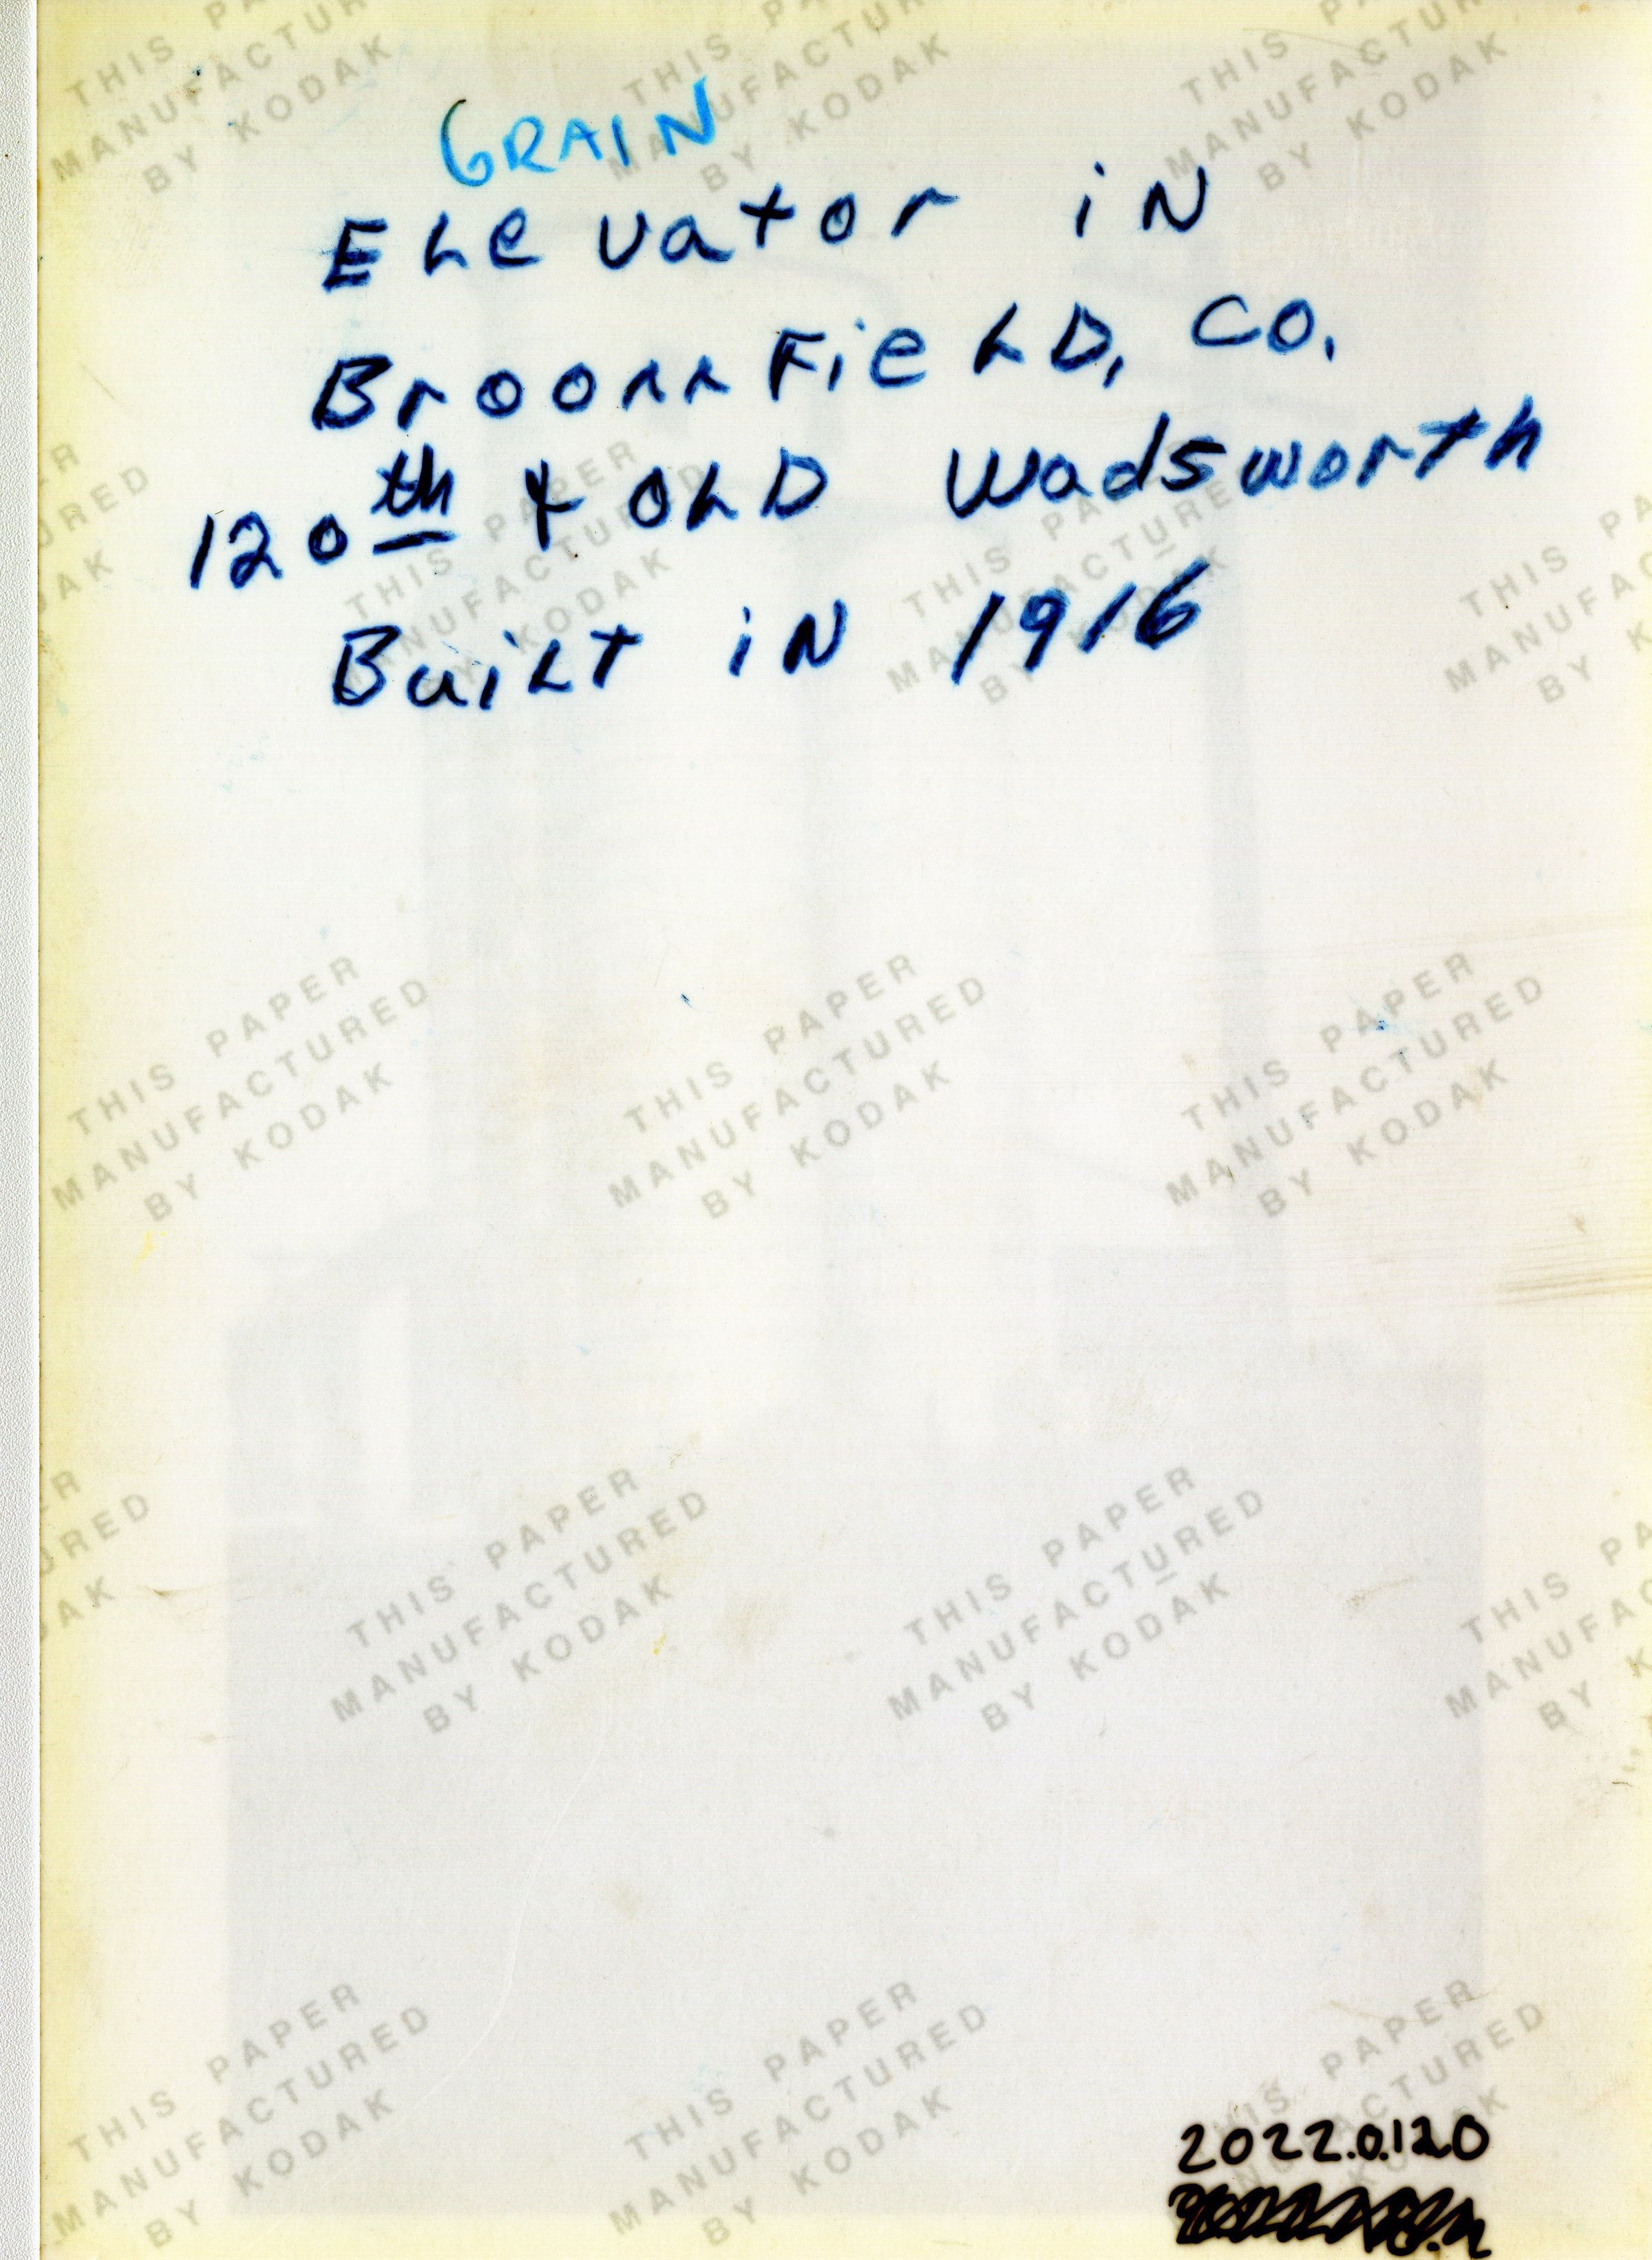 GRAIN
Elevator in
Broomfield, Co.
120th & Old Wadsworth
Built in 1916
THIS PAPER
MANUFACTURED
BY KODAK
2022.0.120